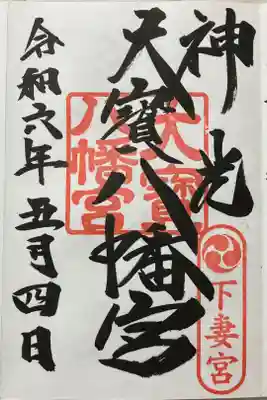 神光
天寳八幡宮
下妻宮
大寳
八幡宮
令和六年五月四日